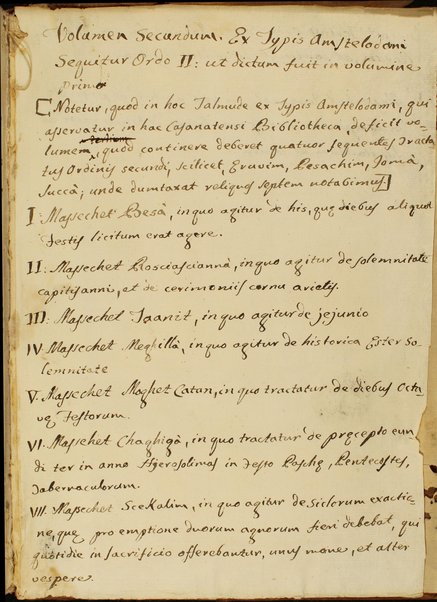 Volumen Secundum. Ex Typis Amstelodami
Sequitur Ordo II: ut dictum fuit in volumine
primo
[Notetur, quod in hoc Talmude ex Typis Amstelodami, qui
asservatur in hac Casanatensi Bibliotheca, deficit vo-
lumen, quod continere deberet quatuor sequentes Tracta-
tus Ordinis secundi, scilicet, Eruvim, Pesachim, Jomà,
Succà; unde dumtaxat reliquos septem notabimus]
I: Massechet Besà, in quo agitur de his, quę diebus aliquot
Festis licitum erat agere.
II: Massechet Rosciasciannà, in quo agitur de solemnitate
capitis anni, et de cerimoniis cornu arietis.
III: Massechet Taanit, in quo agitur de jejunio
IV. Massechet Meghillà, in quo agitur de historica Ester So-
lemnitate
V. Massechet Moghet Catan, in quo tractatur de diebus Octa-
vę Festorum.
VI. Massechet Chaghigà, in quo tractatur de pręcepto eun-
di ter in anno Hyerosolimas in Festo Paschę, Pentecostes,
Tabernaculorum.
VII. Massechet Scekalim, in quo agitur de Siclorum exactio-
ne, quę pro emptione duorum agnorum fieri debebat, qui
quotidie in sacrificio offerebantur, unus mane, et alter
vespere.